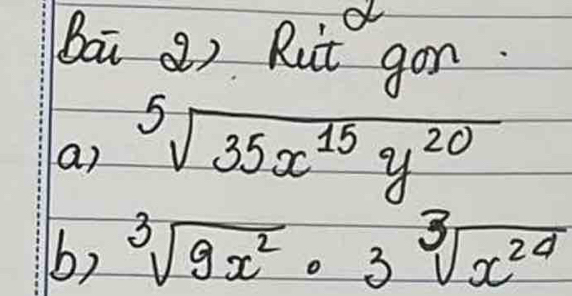 Bài 2) Rút gọn.
a) ⁵√(35x¹⁵y²⁰)
b) ³√(9x²) · 3 ³√(x²⁴)